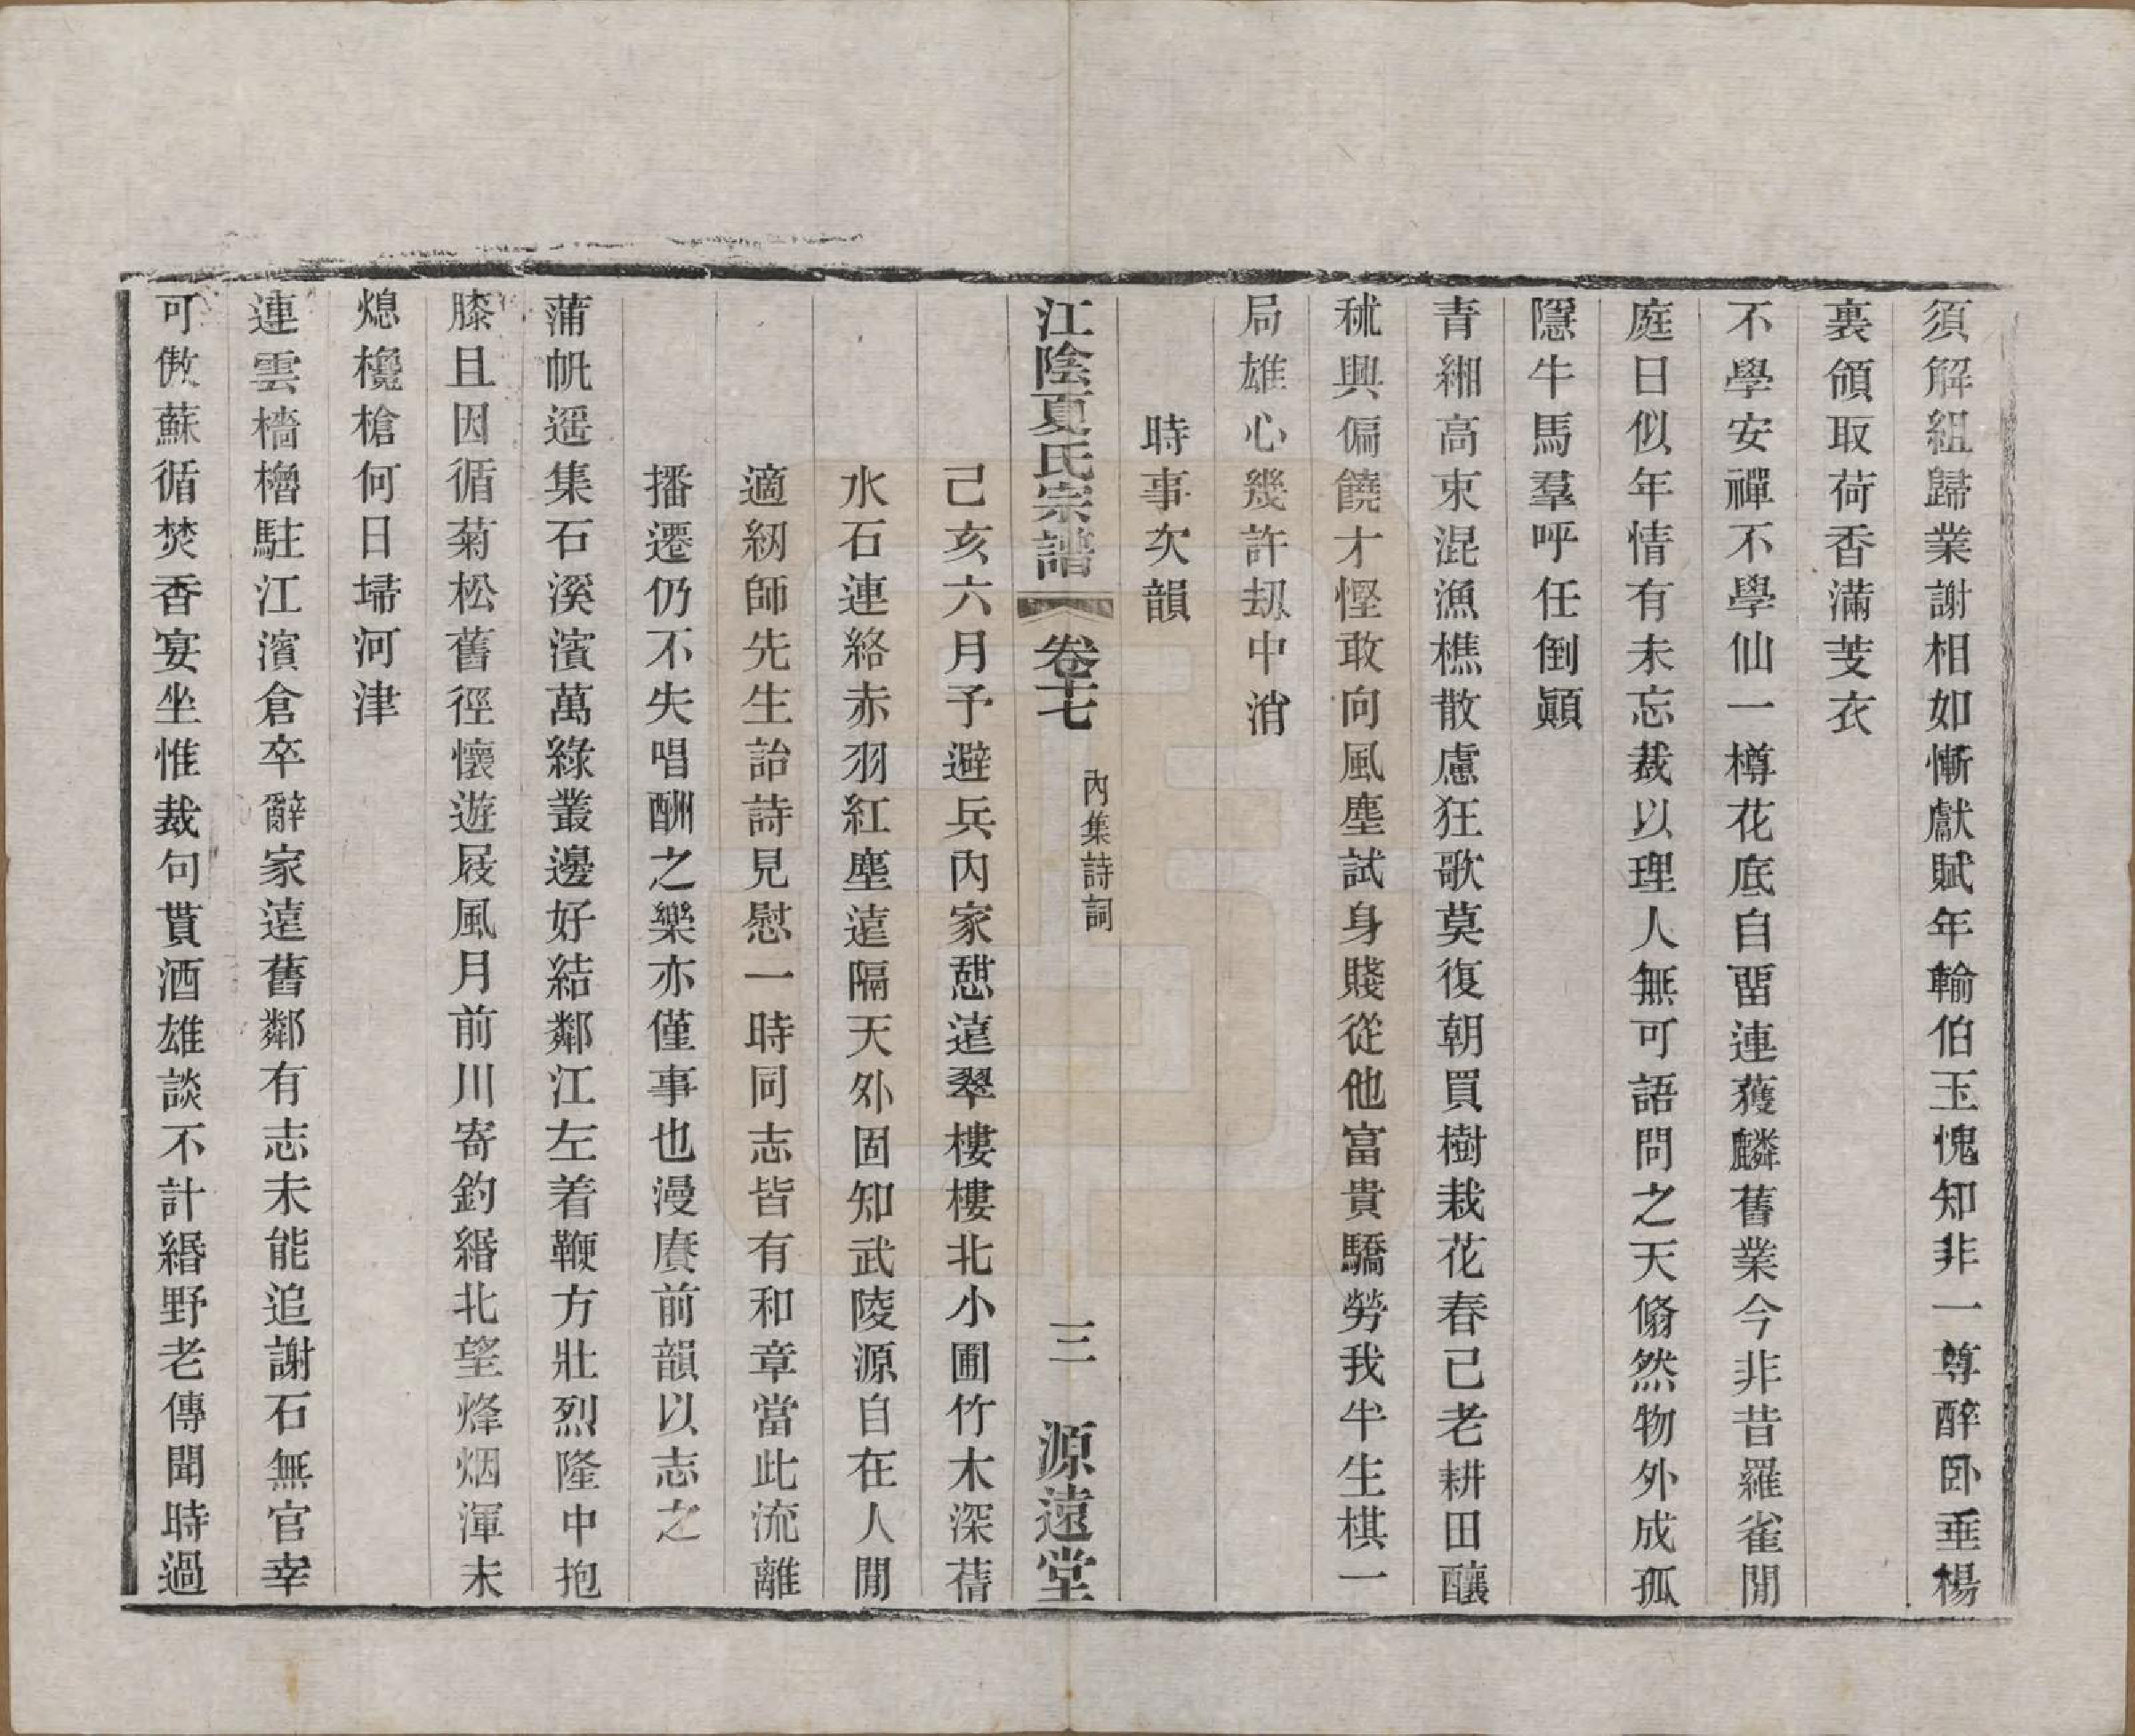 須解組歸業謝相如慚獻賦年輸伯玉愧知非一尊醉卧垂楊
裏領取荷香滿芰衣
不學安禪不學仙一樽花底自畱連獲麟舊業今非昔羅雀閒
庭日似年情有未忘裁以理人無可語問之天翛然物外成孤
隱牛馬羣呼任倒顚
青緗高束混漁樵散慮狂歌莫復朝買樹栽花春已老耕田釀
秫興偏饒才慳敢向風塵試身賤從他富貴驕勞我半生棋一
局雄心幾許刼中消
時事次韻
江陰夏氏宗譜
卷十七
內集詩詞
三
源遠堂
己亥六月予避兵內家憇遠翠樓樓北小圃竹木深蒨
水石連絡赤羽紅塵遠隔天外固知武陵源自在人閒
適紉師先生詒詩見慰一時同志皆有和章當此流離
播遷仍不失唱酬之樂亦僅事也漫賡前韻以志之
蒲帆遥集石溪濱萬綠叢邊好結鄰江左着鞭方壯烈隆中抱
膝且因循菊松舊徑懷遊屐風月前川寄釣緡北望烽烟渾未
熄欃槍何日埽河津
連雲檣櫓駐江濱倉卒辭家遠舊鄰有志未能追謝石無官幸
可傲蘇循焚香宴坐惟裁句貰酒雄談不計緡野老傳聞時過